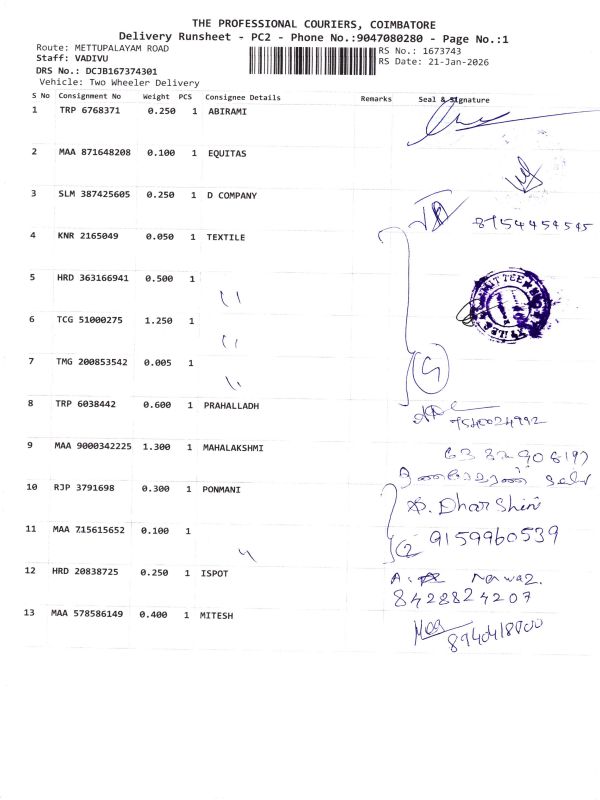 THE PROFESSIONAL COURIERS, COIMBATORE
Delivery Runsheet - PC2 - Phone No.:9047080280 - Page No.:1
Route: METTUPALAYAM ROAD RS No.: 1673743
Staff: VADIVU RS Date: 21-Jan-2026
DRS No.: DCJB167374301
Vehicle: Two Wheeler Delivery
S No Consignment No Weight PCS Consignee Details Remarks Seal & Signature
1 TRP 6768371 0.250 1 ABIRAMI
2 MAA 871648208 0.100 1 EQUITAS
3 SLM 387425605 0.250 1 D COMPANY
8754454545
4 KNR 2165049 0.050 1 TEXTILE
5 HRD 363166941 0.500 1 "
6 TCG 51000275 1.250 1 "
7 TMG 200853542 0.005 1 "
8 TRP 6038442 0.600 1 PRAHALLADH
7540024992
9 MAA 9000342225 1.300 1 MAHALAKSHMI
10 RJP 3791698 0.300 1 PONMANI
D. Dharshini
11 MAA 715615652 0.100 1 " 2 9159960539
12 HRD 20838725 0.250 1 ISPOT
8428824207
13 MAA 578586149 0.400 1 MITESH